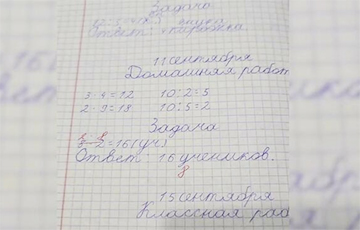 Задача
Ответ:
11 сентября
Домашняя работ
3·4=12 10:2=5
2·9=18 10:5=2
Задача
=16(уч.)
Ответ: 16 учеников.
8
15 сентября
Классная раб